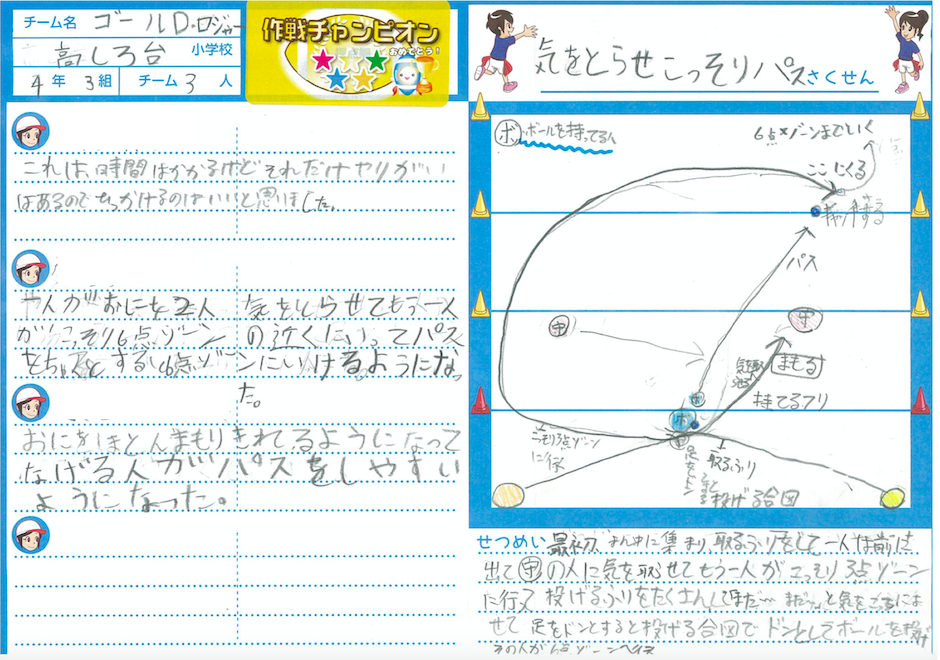 チーム名 ゴールD・ロジャー
高しろ台 小学校
4年 3組 チーム 3人
作戦チャンピオン
おめでとう!
気をとらせこっそりパス さくせん
これは、時間はかかるけどそれだけやりがい
はあるのでちっかけるのはいいと思いました。
気をとらせてもう一人
がこっそり6点ゾーンの近くにいってパス
をする 6点ゾーンにいけるようになっ
た。
おにをほとんまもりきれてるようになって
なげる人がパスをしやすい
ようになった。
ホ ボールを持ってる人
6点ゾーンまでいく
ここにくる
キャッチする
パス
守
守
まもる
持てるフリ
ホ
こっそり3点ゾーン
に行く
取るふり
足をドン
投げる合図
せつめい 最初 まん中に集まり、取るふりをして一人は前に
出て守の人に気を取らせてもう一人がこっそり3点ゾーン
に行く 投げるふりをたくさんして
せて 足をドンとすると投げる合図でドンとしてボールを投げ
その人が6点ゾーンへ行く